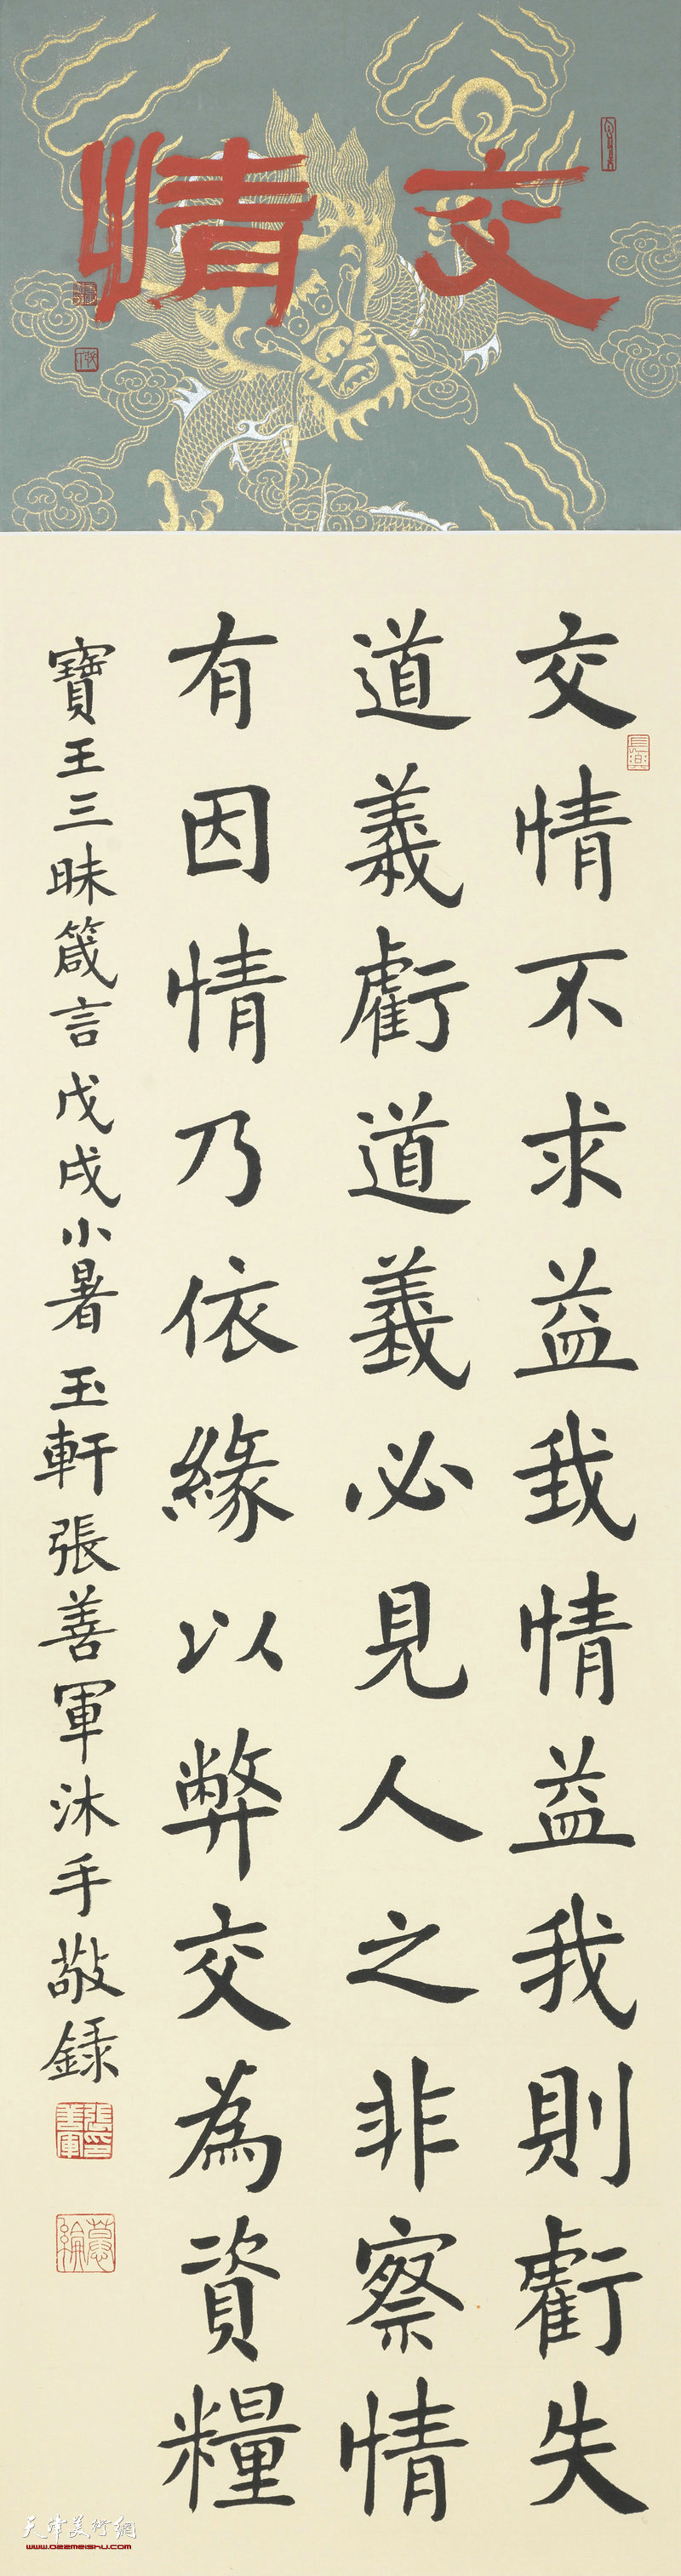 交情
交情不求益我情益我則虧失
道義虧道義必見人之非察情
有因情乃依緣以弊交為資糧
寶王三昧箴言戊戌小暑玉軒張善軍沐手敬録
天津美术網
www.022meishu.com